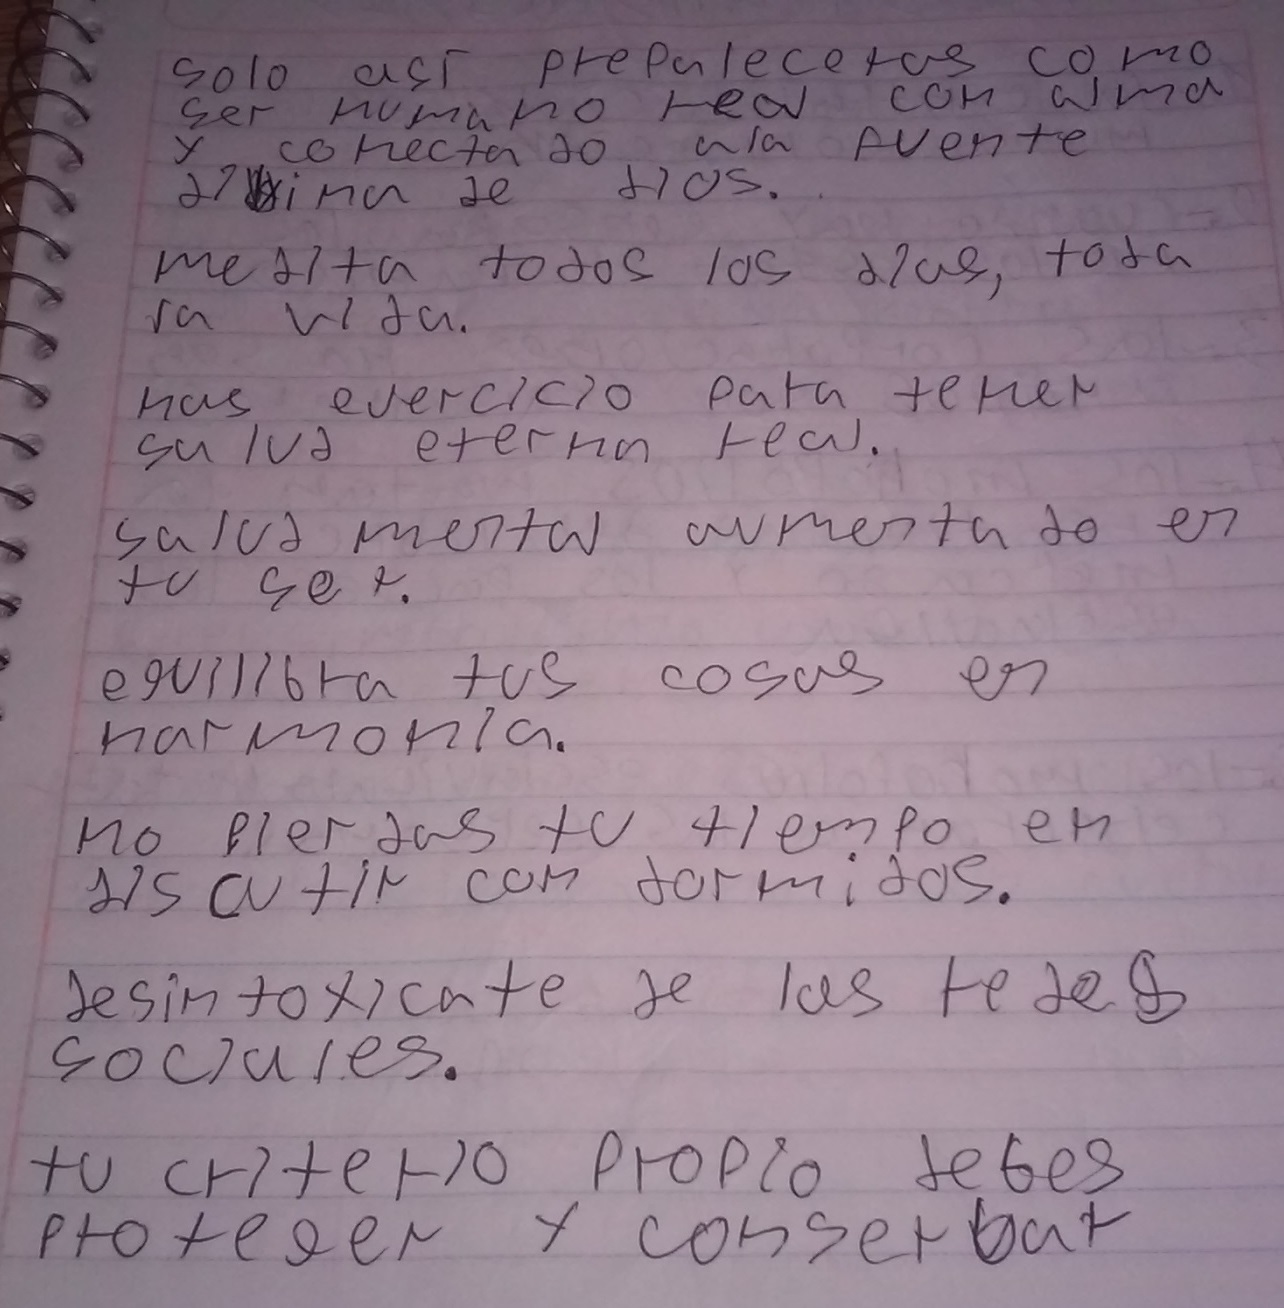 solo así prepaleceras como
ser humano real con alma
y conectado ala fuente
divina de dios.
medita todos los dias, toda
la vida.
has evercicio para tener
salud eterna real.
salud mental aumentado en
tu ser.
equilibra tus cosas en
harmonia.
no pierdas tu tiempo en
discutir con dormidos.
desintoxicate de las redes
sociales.
tu criterio propio debes
proteger y conserbar